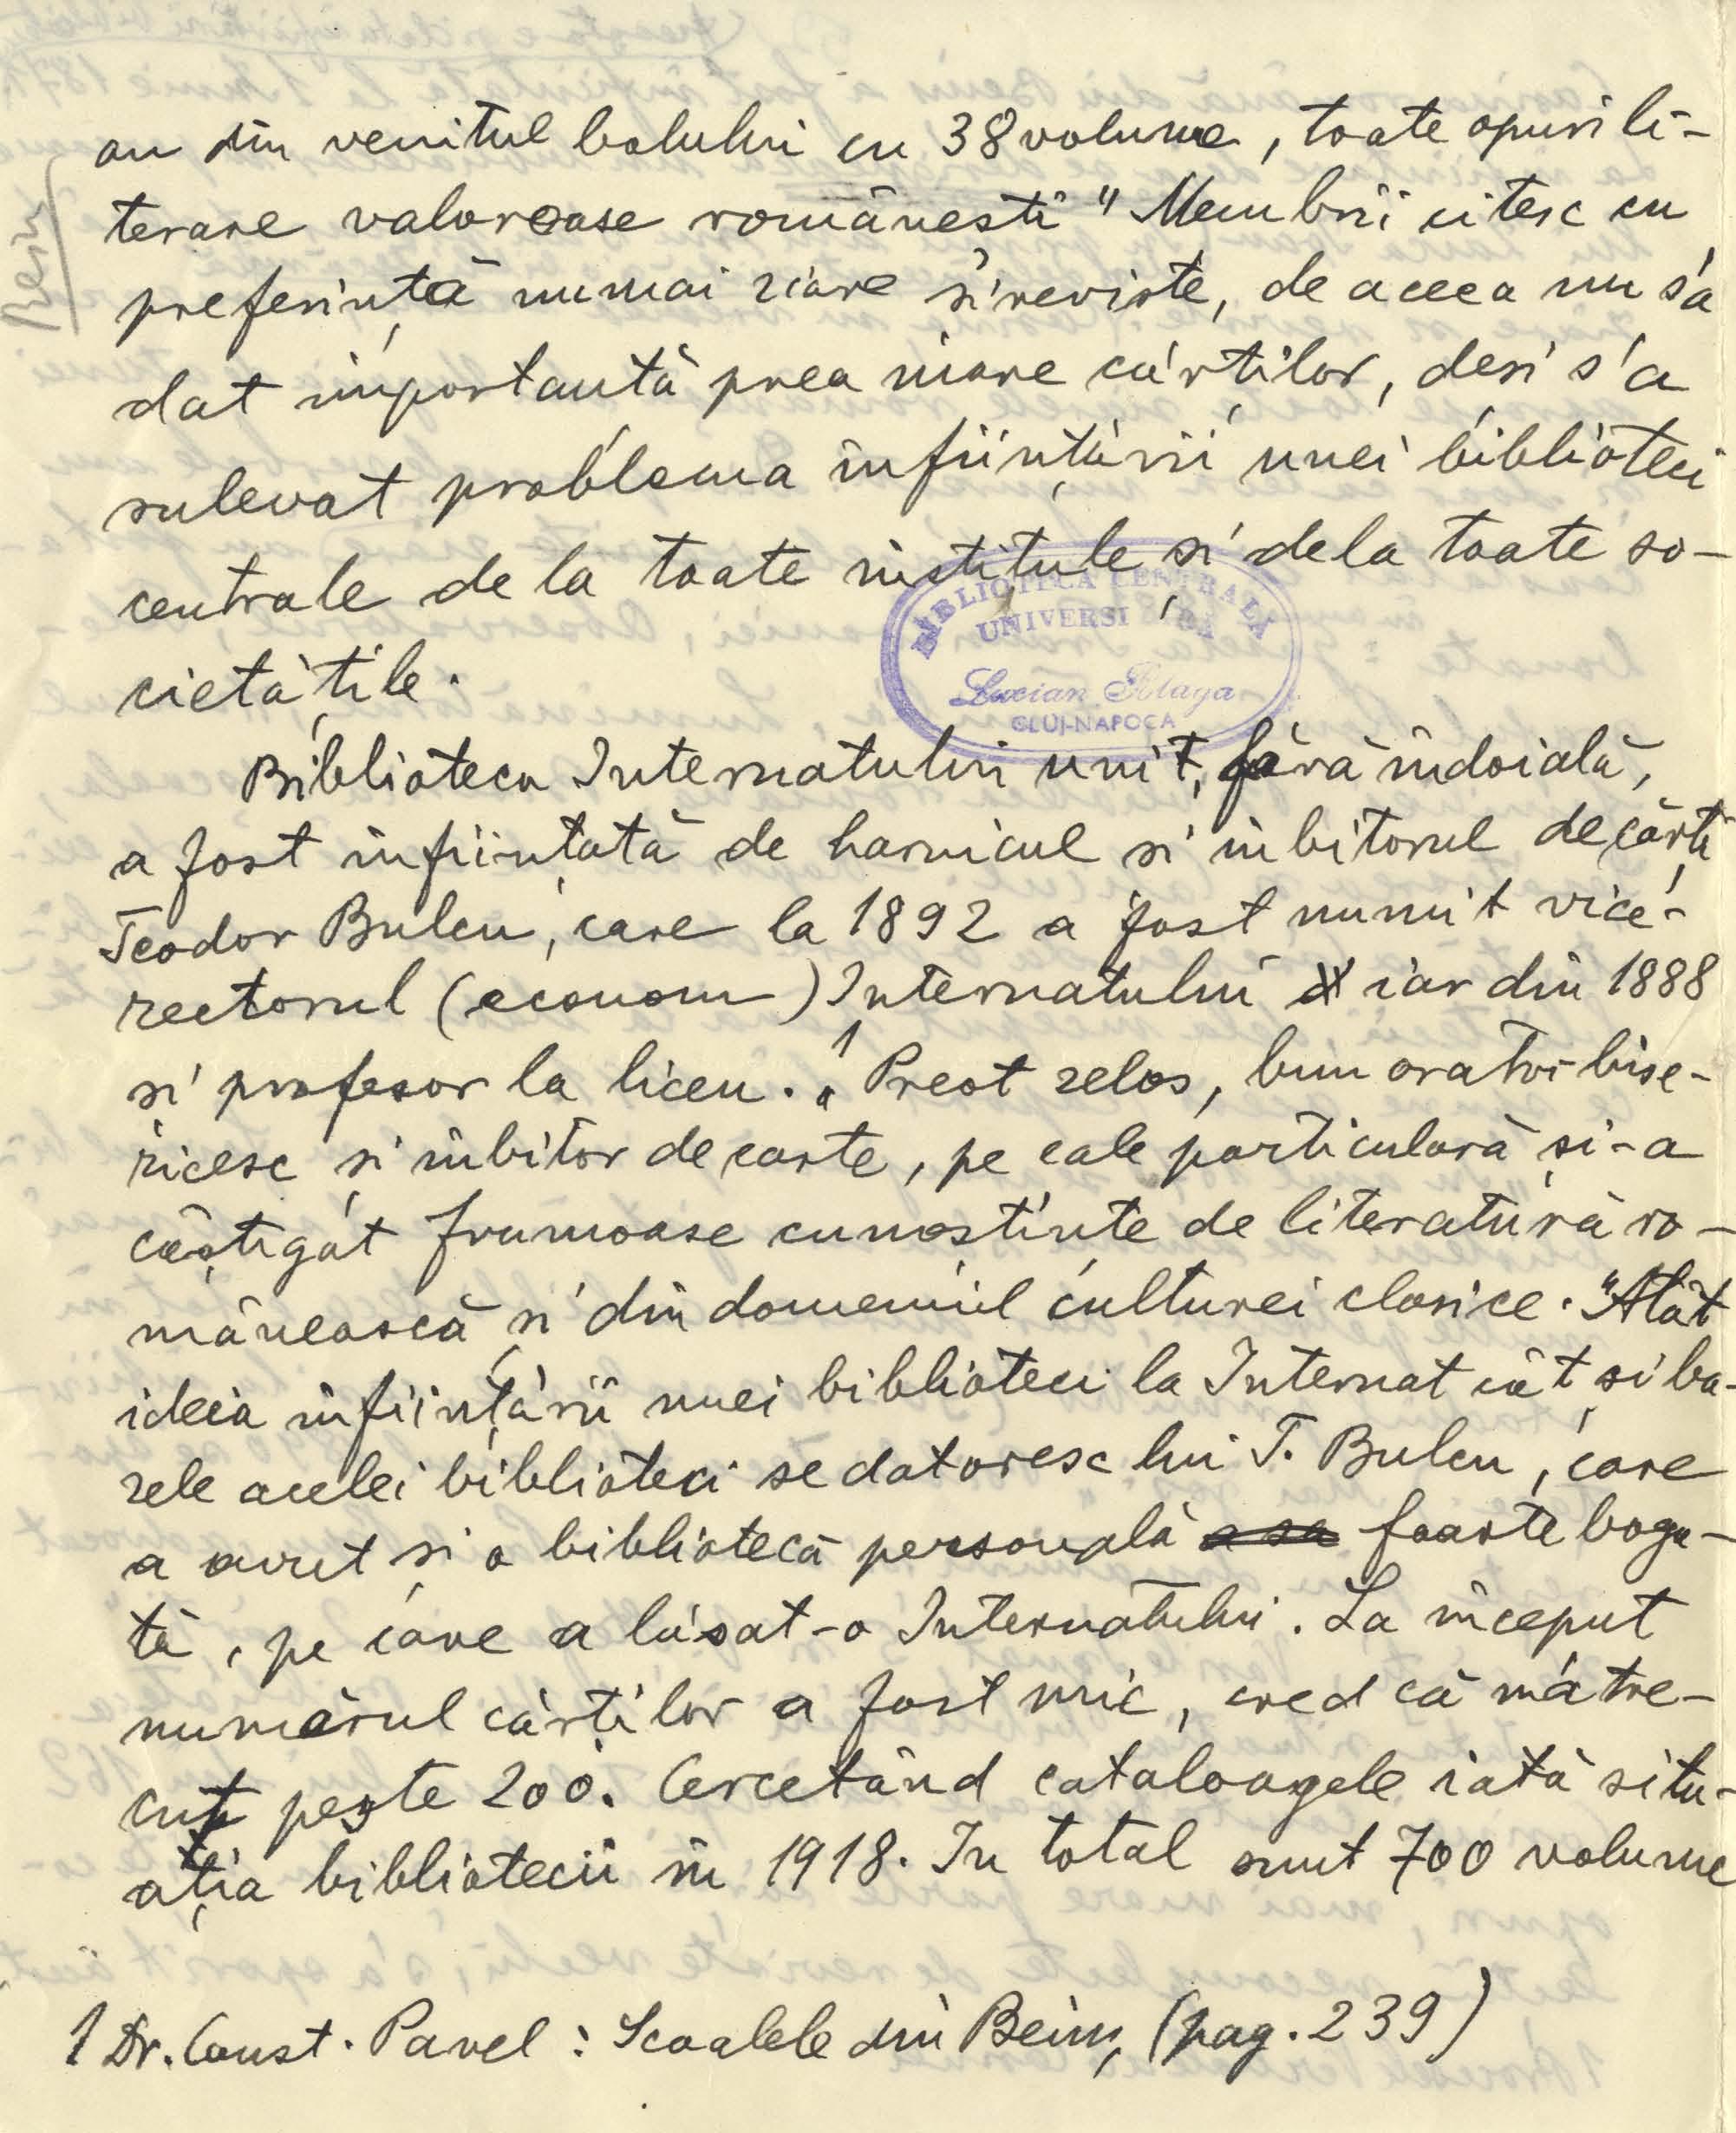 an din venitul balului cu 38 volume, toate opuri li-
terare valoroase românești" Membrii citesc cu
preferință numai ziare și reviste, de aceea nu s'a
dat importantă prea mare cărților, deși s'a
sulevat problema înființării unei biblioteci
centrale de la toate institule și dela toate so-
cietățile.
BIBLIOTECA CENTRALĂ
UNIVERSI
Lucian Blaga
CLUJ-NAPOCA
Biblioteca Internatului unit, fără îndoială,
a fost înființată de harnicul și iubitorul de cărți
Teodor Bulcu, care la 1892 a fost numit vice-
rectorul (econom) Internatului iar din 1888
și profesor la liceu.1 „Preot zelos, bun orator bise-
ricesc și iubitor de carte, pe cale particulară și-a
câștigat frumoase cunoștințe de literatură ro-
mânească și din domeniul culturei clasice." Atât
ideia înființării unei biblioteci la Internat cât și ba-
zele acelei biblioteci se datoresc lui T. Bulcu, care
a avut și o bibliotecă personală foarte boga-
tă, pe care a lăsat-o Internatului. La început
numărul cărților a fost mic, cred că n'a tre-
cut peste 200. Cercetând cataloagele iată situ-
ația bibliotecii în 1918. In total sunt 700 volume
1 Dr. Const. Pavel: Scoalele din Beiuș, (pag. 239)
Beiuș